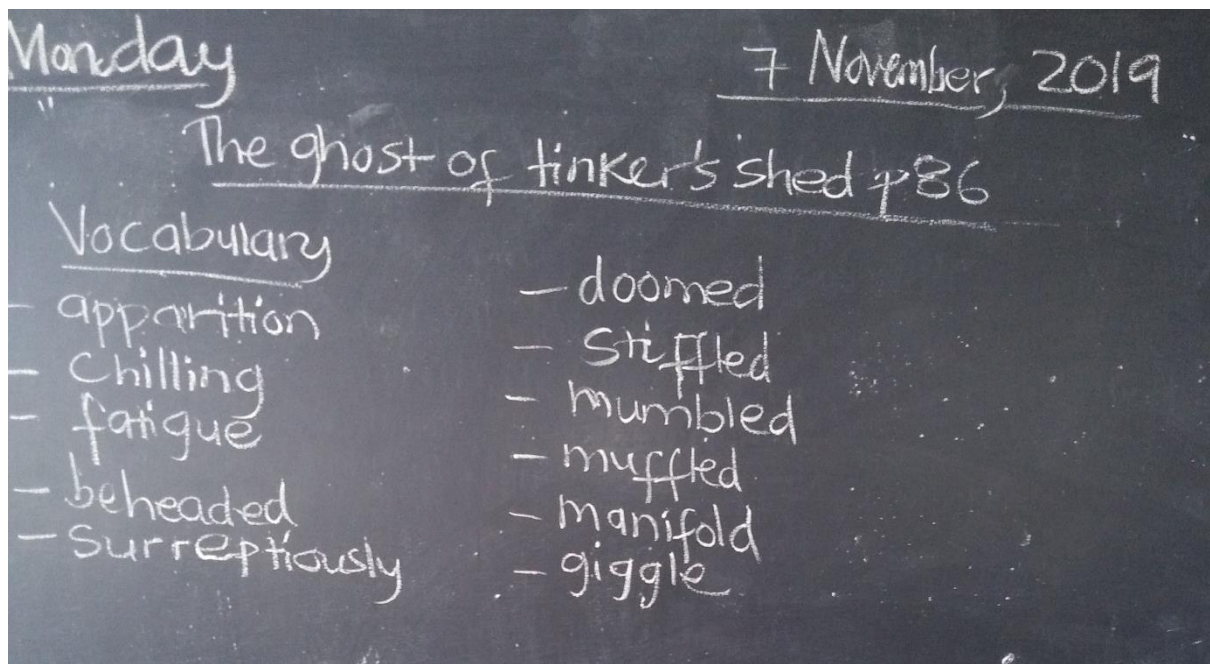 Monday
7 November, 2019
The ghost of tinker's shed p86
Vocabulary
- apparition
- Chilling
- fatigue
- beheaded
- Surreptiously
- doomed
- Stiffled
- mumbled
- muffled
- manifold
- giggle